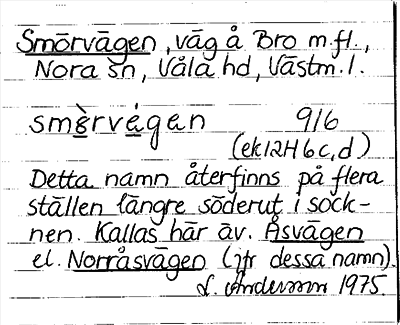 Smörvägen, väg å Bro m.fl.,
Nora sn, Våla hd, Västm. l.
smèrvégan 916
(ek 12H6c,d)
Detta namn återfinns på flera
ställen längre söderut i sock-
nen. Kallas här äv. Åsvägen
el. Norråsvägen (jfr dessa namn).
S. Anderson 1975.